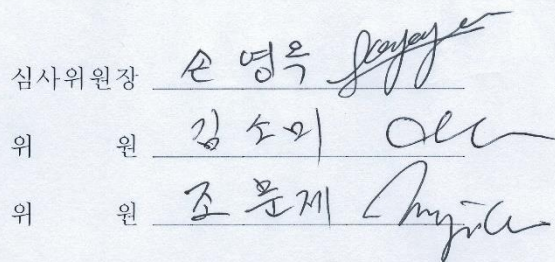 심사위원장 손영옥
위 원 김소미
위 원 조문제